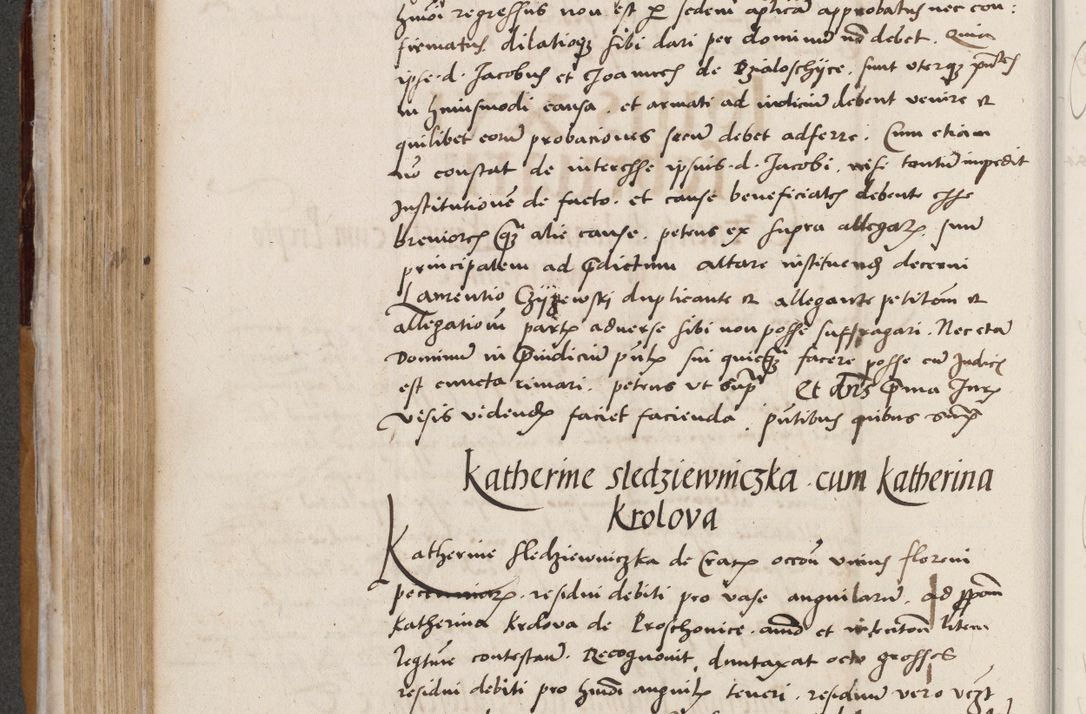 hmõi regressus non est p sedem aplicã approbatus nec con:
firmatus, dilatioq3 sibi dari per dominũ nõ debet. Quia
ipse d. Jacobus et Joannes de Dzialoschÿce. sunt uterq3 pñtes
in huiusmodi causa. et armati ad iudiciũ debent venire et
quilibet eorũ probaciones secũ debet adferre. Cum etiam
nõ constat de interesse ipsius d. Jacobi, nisi tantũ impedit
Institutionẽ de facto. et cause beneficiales debent esse
breuiores q3 alie cause. petens ex supra allegatis suũ
principalem ad pdictum altare instituend decerni
Laurentio Czÿzewski duplicante et allegante petitõm et
allegationẽ partis aduerse sibi non posse suffragari. Nec etã
Dominum in piudiciũ ptis sui quicq3 facere posse cũ Judicis
est cuncta rimari. petens ut supᵃ Et dñs pma Jur
vesis videndis faciet facienda. pñtibus quibus supᵃ
Katherine sledziewniczka cum Katherina
Krolova
Katherine sledziewniczka de Crac occoñ vnius floreni
residui debiti pro vase anguilarũ. ad ppoñ
Katherina Krolova de Proschovice et litem
legtime contestañ. Recognouit duntaxat octo grosses
residui debiti pro hmõi anguilis teneri. residuũ vero